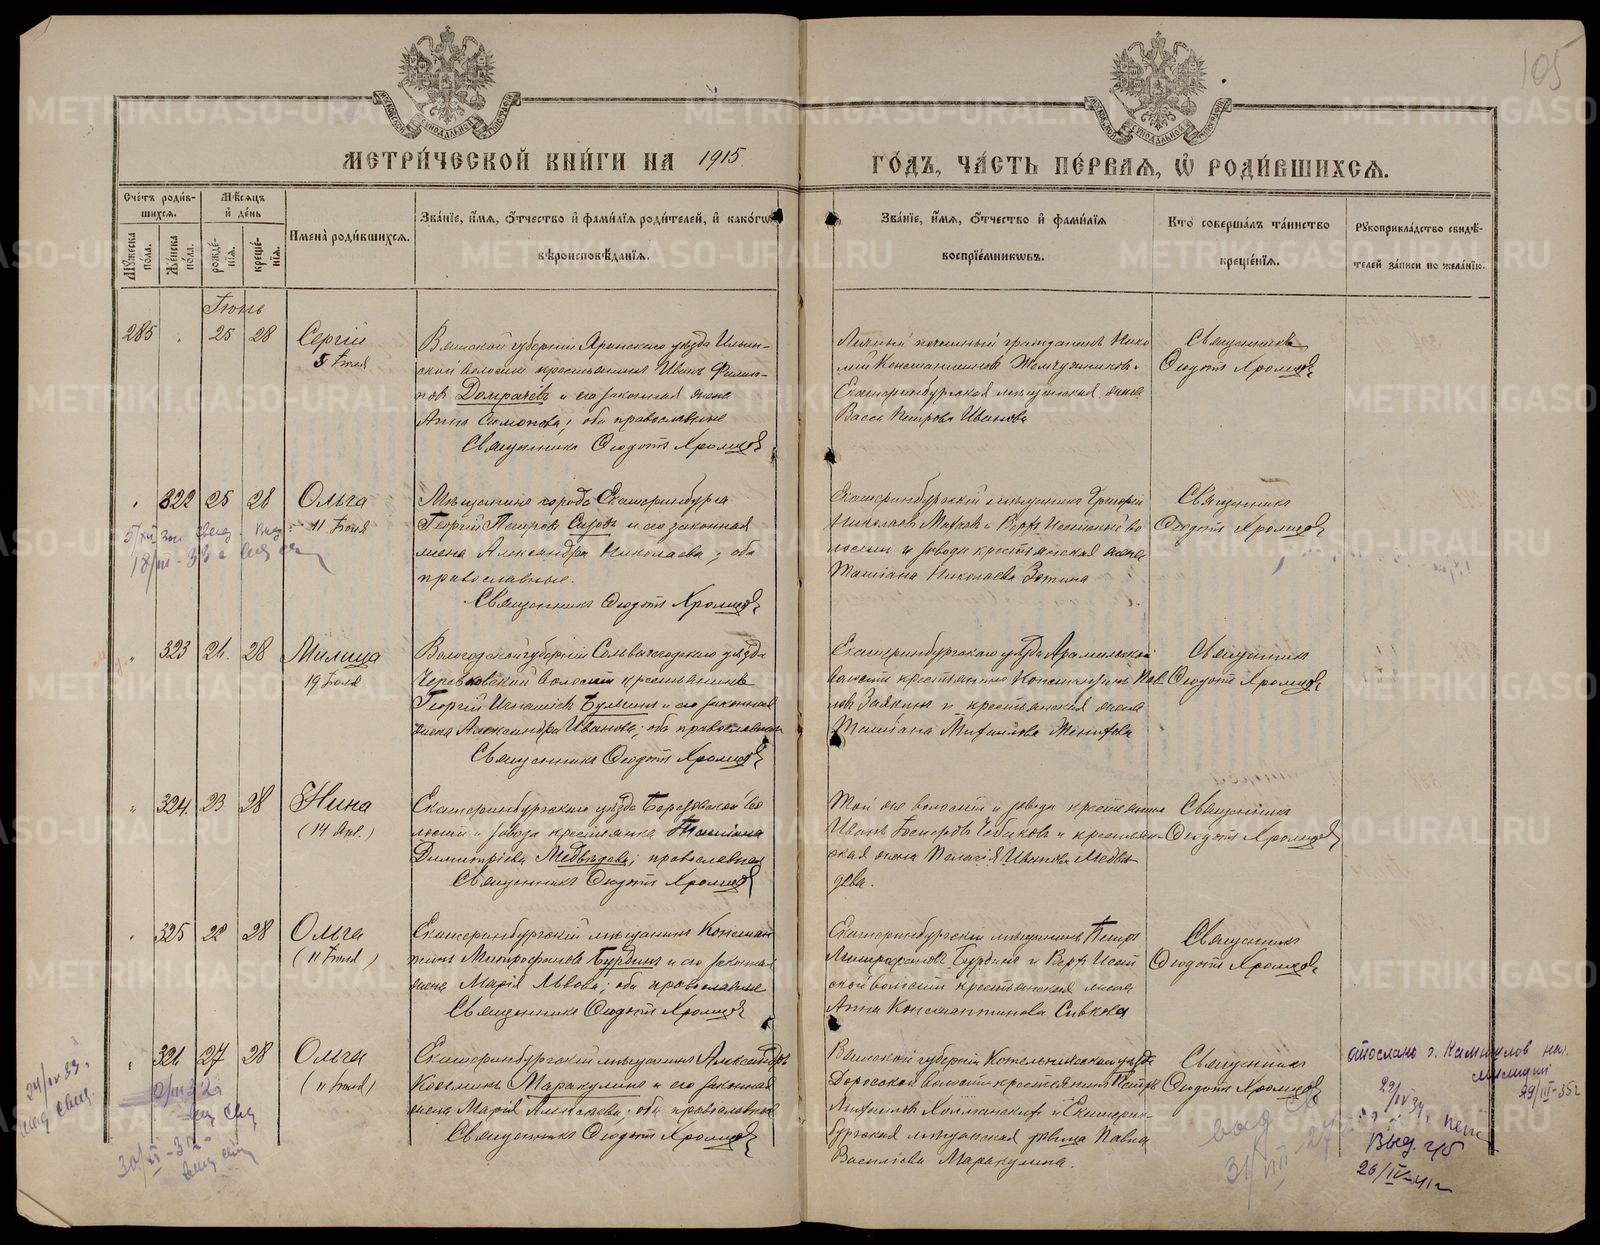 105
МЕТРИ́ЧЕСКОЙ КНИ́ГИ НА 1915
ГО́ДЪ, ЧА́СТЬ ПЕ́РВАЯ, Ѿ РОДИ́ВШИХСЯ.
Сче́тъ роди́в-
шихся.
Мѣ́сяцъ
и де́нь
Му́жеска по́ла.
Же́нска по́ла.
рожде́-
нія.
креще́-
нія.
Имена̀ роди́вшихся.
Зва́ніе, и́мя, о́тчество и фами́лія роди́телей, и како́гѡ
вѣроисповѣ́данія.
Зва́ніе, и́мя, о́тчество и фами́лія
воспріе́мниковъ.
Кто̀ соверша́лъ та́инство
креще́нія.
Рукоприкла́дство свидѣ́-
телей за́писи по жела́нію.
Іюнь
285 25 28 Сергій
5 Іюля
Вятской губерніи Яранскаго уѣзда Ильин-
ской волости крестьянинъ Иванъ Филип-
повъ Домрачевъ и его законная жена
Анна Симонова; оба православные
Священникъ Ѳеодотъ Хромцовъ
Личный почетный гражданинъ Нико
лай Константиновъ Жемчужниковъ.
Екатеринбургская мѣщанская жена
Васса Петрова Иванова
Священникъ
Ѳеодотъ Хромцовъ
322 25 28 Ольга
11 Іюля
Мѣщанинъ города Екатеринбурга
Георгій Петровъ и его законная
жена Александра Николаева; оба
православные.
Священникъ Ѳеодотъ Хромцовъ
Екатеринбургскій мѣщанинъ Григорій
Николаевъ и Верх Исетской во
лости и завода крестьянская жена
Татіана Николаева Зотина
Священникъ
Ѳеодотъ Хромцовъ
323 21. 28 Милица
19 Іюля
Вологодской губерніи Сольвычегодскаго уѣзда
Черевковской волости крестьянинъ
Георгій Игнатіевъ и его законная
жена Александра Иванова; оба православные
Священникъ Ѳеодотъ Хромцовъ
Екатеринбургскаго уѣзда Арамильской
волости крестьянинъ Константинъ Пав
ловъ и крестьянская жена
Татіана Михаилова
Священникъ
Ѳеодотъ Хромцовъ
324. 23 28 Нина
(14 Янв.)
Екатеринбургскаго уѣзда Березовской во
лости и завода крестьянка Татіана
Димитріева Медвѣдева; православная
Священникъ Ѳеодотъ Хромцовъ
Той же волости и завода крестьянинъ
Иванъ и крестьян-
ская жена Пелагія Иванова Медвѣ
дева.
Священникъ
Ѳеодотъ Хромцовъ
325 22 28 Ольга
(11 Іюля)
Екатеринбургскій мѣщанинъ Констан
тинъ Митрофановъ Бурдинъ и его законная
жена Марія Львова; оба православные
Священникъ Ѳеодотъ Хромцовъ
Екатеринбургскій мѣщанинъ Петръ
Митрофановъ Бурдинъ и Верх Исет
ской волости крестьянская жена
Анна Константинова Сивкова
Священникъ
Ѳеодотъ Хромцовъ
326 27 28 Ольга
(11 Іюля)
Екатеринбургскій мѣщанинъ Александръ
Козминъ Маракулинъ и его законная
жена Марія Алексѣева; оба православные
Священникъ Ѳеодотъ Хромцовъ
Вятской губерніи Котельническаго уѣзда
волости крестьянинъ Петръ
Михаиловъ и Екатерин-
бургская мѣщанская дѣвица Павла
Василіева Маракулина.
Священникъ
Ѳеодотъ Хромцовъ
отослано г. Камышлов нач.
милиціи
29/III-35г
29/IV 34
Выд.
26/IV-41г
METRIKI.GASO-URAL.RU